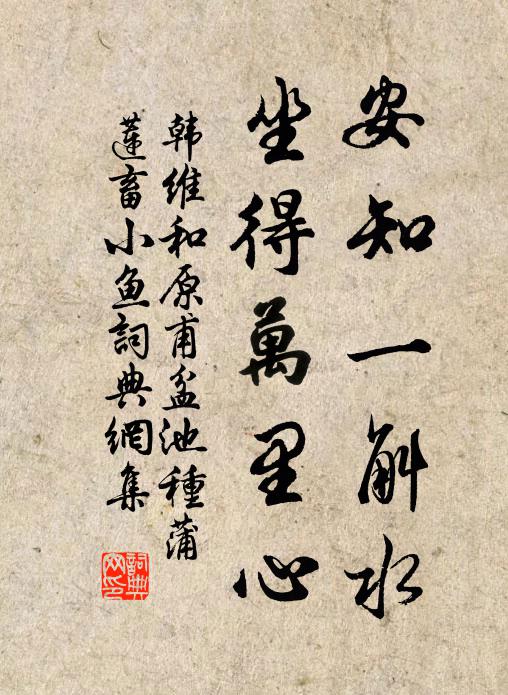 安知一斛水
坐得萬里心
韩維和原甫盆池種蒲
蓮畜小鱼詞典網集
詞典网印